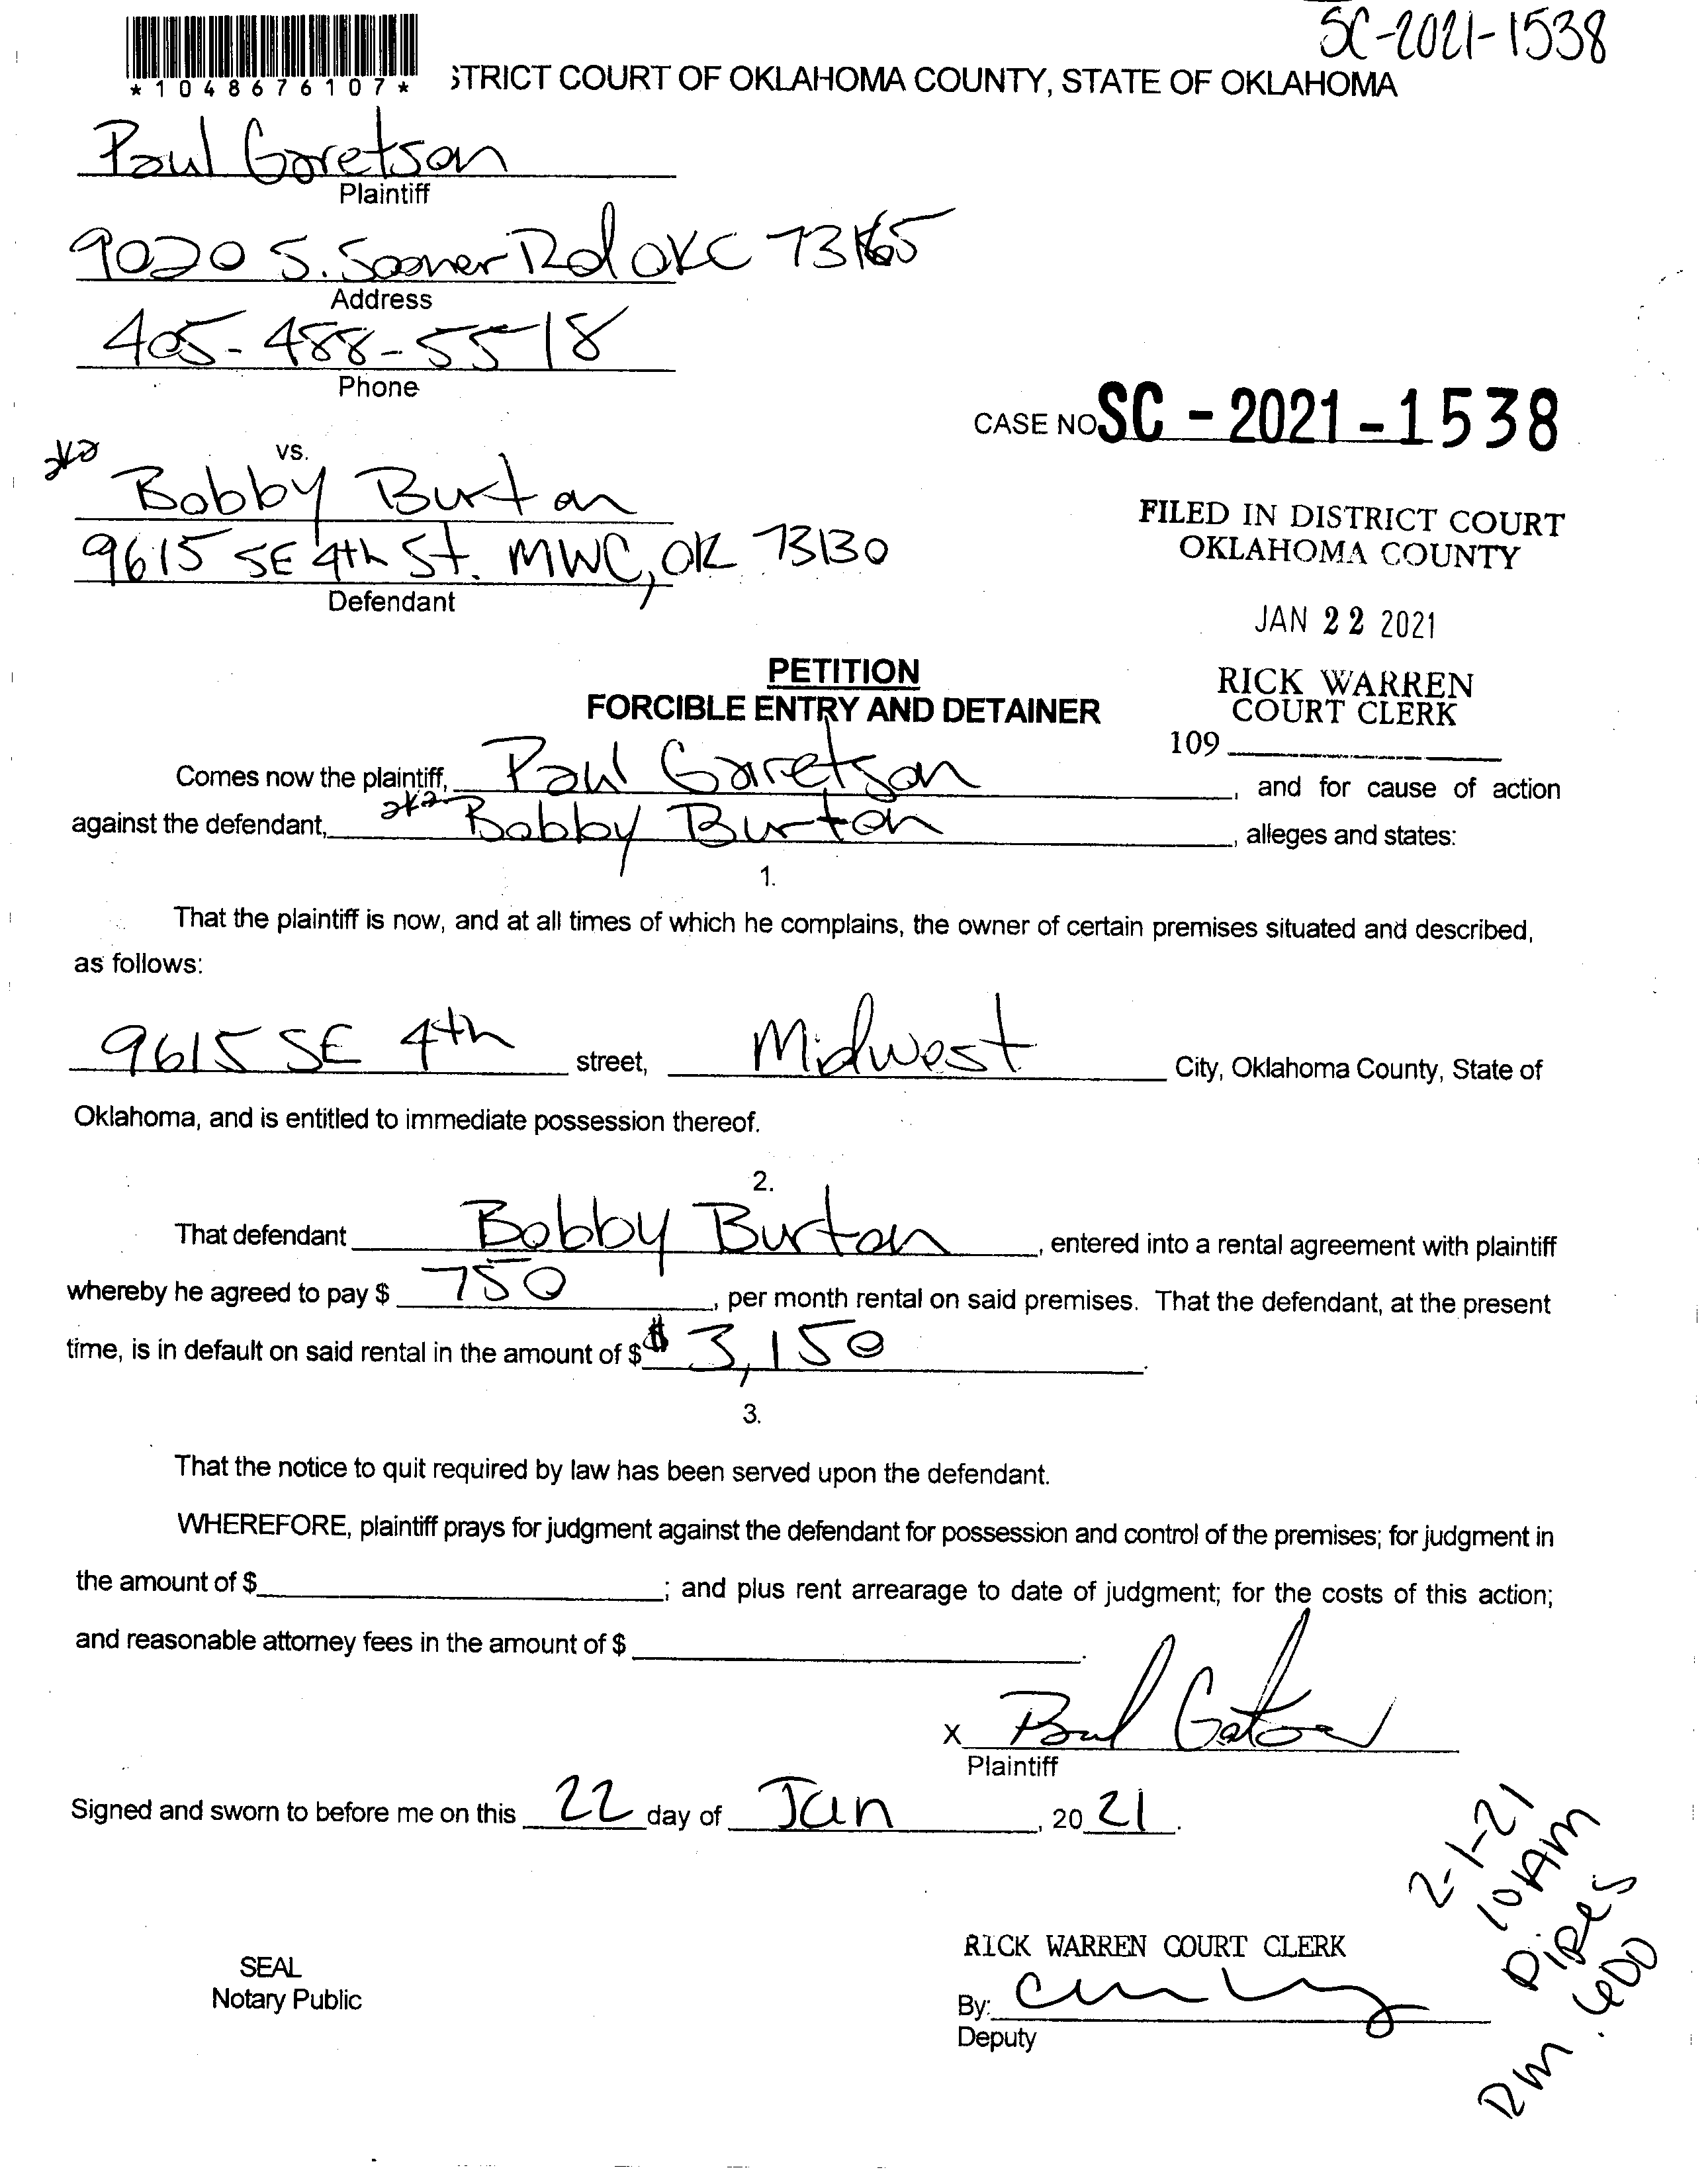 SC-2021-1538
*1048676107*
STRICT COURT OF OKLAHOMA COUNTY, STATE OF OKLAHOMA
Paul Garetson
Plaintiff
9020 S. Sooner Rd OKC 73165
Address
405-488-5518
Phone
CASE NO SC-2021-1538
vs.
aka Bobby Burton
9615 SE 4th St. MWC, OK 73130
Defendant
FILED IN DISTRICT COURT
OKLAHOMA COUNTY
JAN 22 2021
RICK WARREN
COURT CLERK
109
PETITION
FORCIBLE ENTRY AND DETAINER
Comes now the plaintiff, Paul Garetson, and for cause of action
against the defendant, aka Bobby Burton, alleges and states:
1.
That the plaintiff is now, and at all times of which he complains, the owner of certain premises situated and described,
as follows:
9615 SE 4th street, Midwest City, Oklahoma County, State of
Oklahoma, and is entitled to immediate possession thereof.
2.
That defendant Bobby Burton, entered into a rental agreement with plaintiff
whereby he agreed to pay $ 750, per month rental on said premises. That the defendant, at the present
time, is in default on said rental in the amount of $ $ 3,150.
3.
That the notice to quit required by law has been served upon the defendant.
WHEREFORE, plaintiff prays for judgment against the defendant for possession and control of the premises; for judgment in
the amount of $ ; and plus rent arrearage to date of judgment; for the costs of this action;
and reasonable attorney fees in the amount of $ .
X Paul Garetson
Plaintiff
Signed and sworn to before me on this 22 day of Jan, 2021.
2-1-21
10AM
Pipes
Rm. 400
SEAL
Notary Public
RICK WARREN COURT CLERK
By:
Deputy